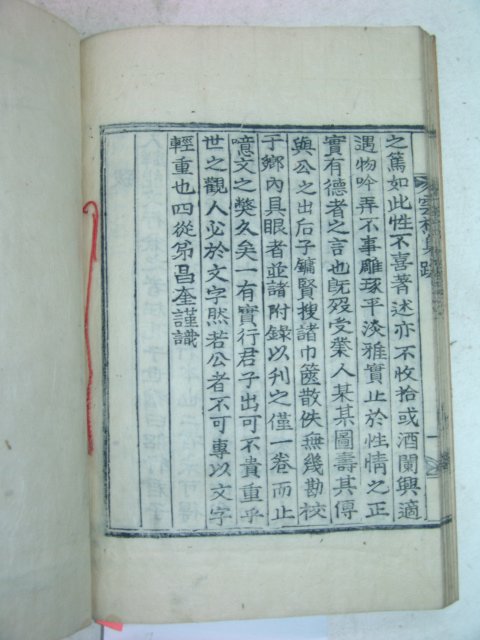 之篤如此性不喜著述亦不收拾或酒闌興適
遇物吟弄不事雕琢平淡雅實止於性情之正
實有德者之言也旣歿受業人某某圖壽其傳
與公之出后子鏞賢搜諸巾篋散佚無幾勘校
于鄉內具眼者並諸附錄以刊之僅一卷而止
噫文之獘久矣一有實行君子出可不貴重乎
世之觀人必於文字然若公者不可專以文字
輕重也四從弟昌奎謹識